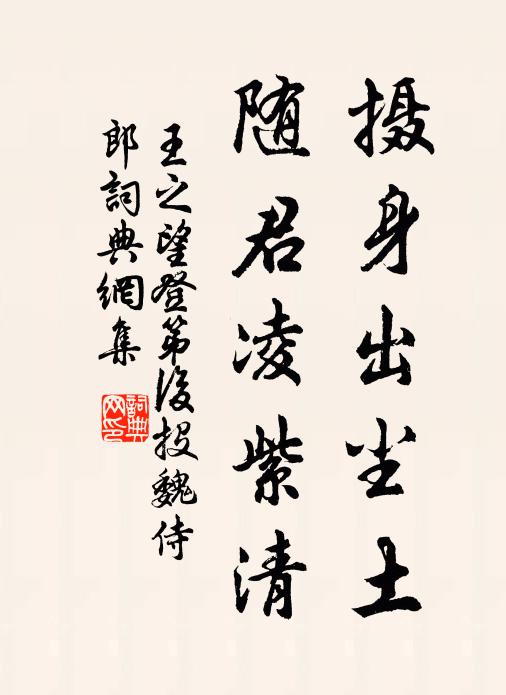 摄身出尘土
随君凌紫清
王之望登第後投魏侍
郎詞典網集
詞典网印